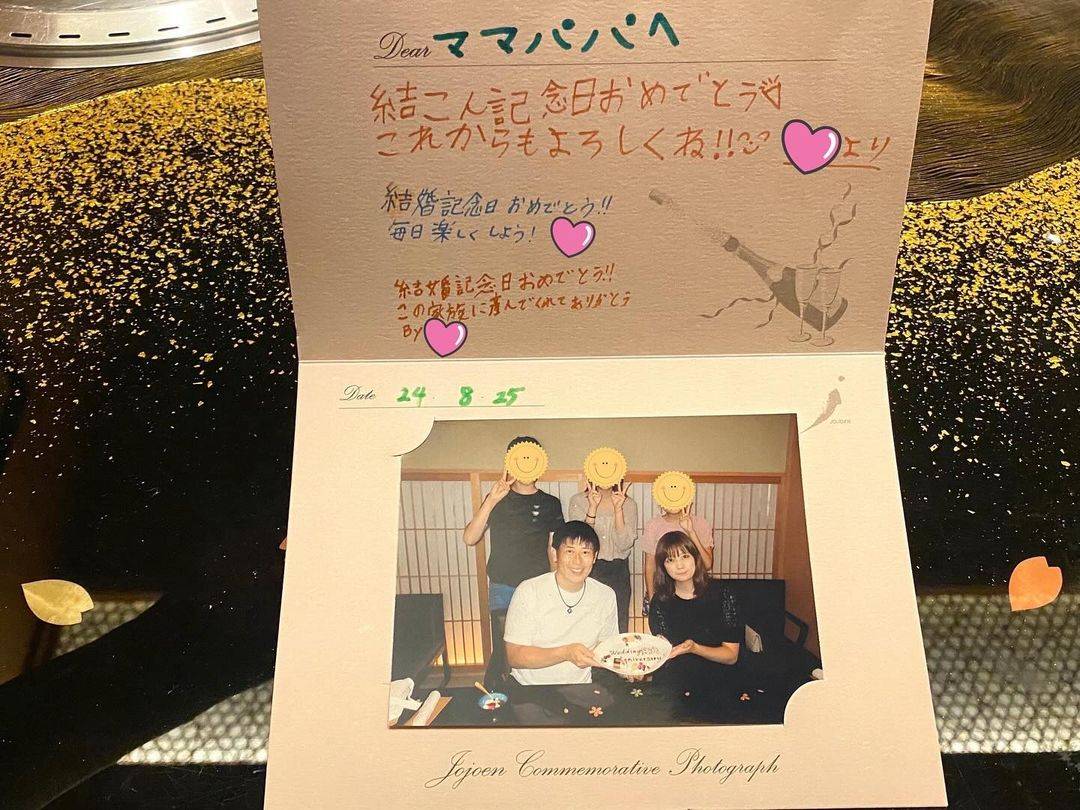 Dear ママパパへ
結こん記念日おめでとう♡
これからもよろしくね!! より
結婚記念日おめでとう!!
毎日楽しくしよう!
結婚記念日おめでとう!!
この家族に産んでくれてありがとう
By
Date 24. 8. 25
JOJOEN
Wedding
Anniversary
Jojoen Commemorative Photograph